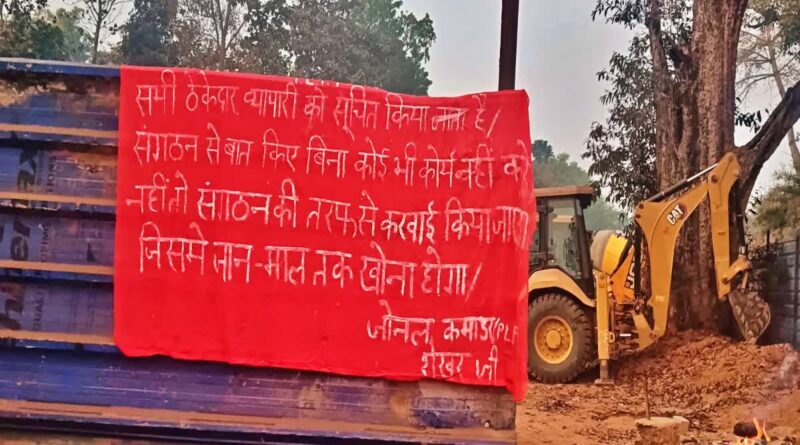 सभी ठेकेदार व्यापारी को सूचित किया जाता है/
संगठन से बात किए बिना कोई भी कार्य नहीं करे
नहीं तो संगठन की तरफ से करवाई किया जाएगा
जिसमे जान-माल तक खोना होगा/
जोनल कमांडर PLF
शेखर जी
CAT